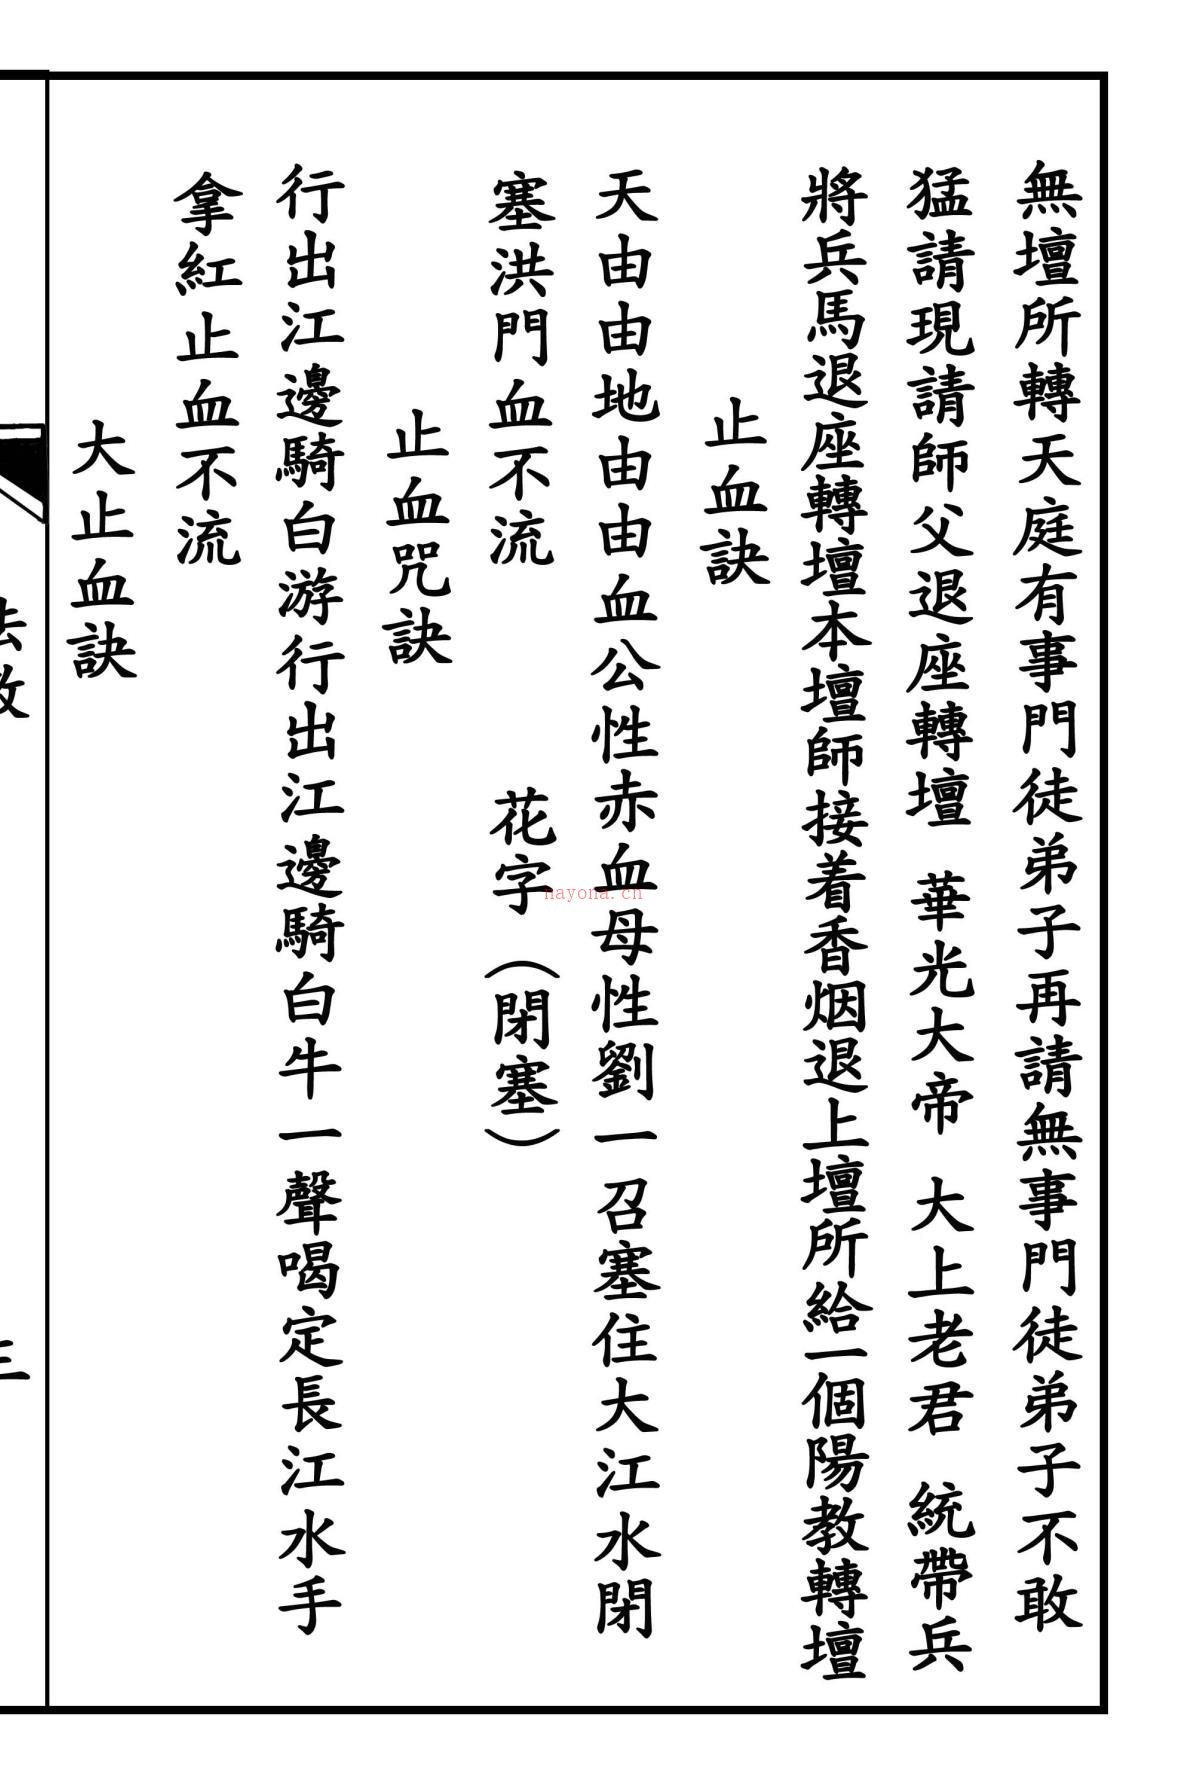 無壇所轉天庭有事門徒弟子再請無事門徒弟子不敢
猛請現請師父退座轉壇 華光大帝 大上老君 統帶兵
將兵馬退座轉壇本壇師接着香烟退上壇所給一個陽教轉壇
止血訣
天由由地由由血公性赤血母性劉一召塞住大江水閉
塞洪門血不流 花字（閉塞）
止血咒訣
行出江邊騎白游行出江邊騎白牛一聲喝定長江水手
拿紅止血不流
大止血訣
三
nayona.cn